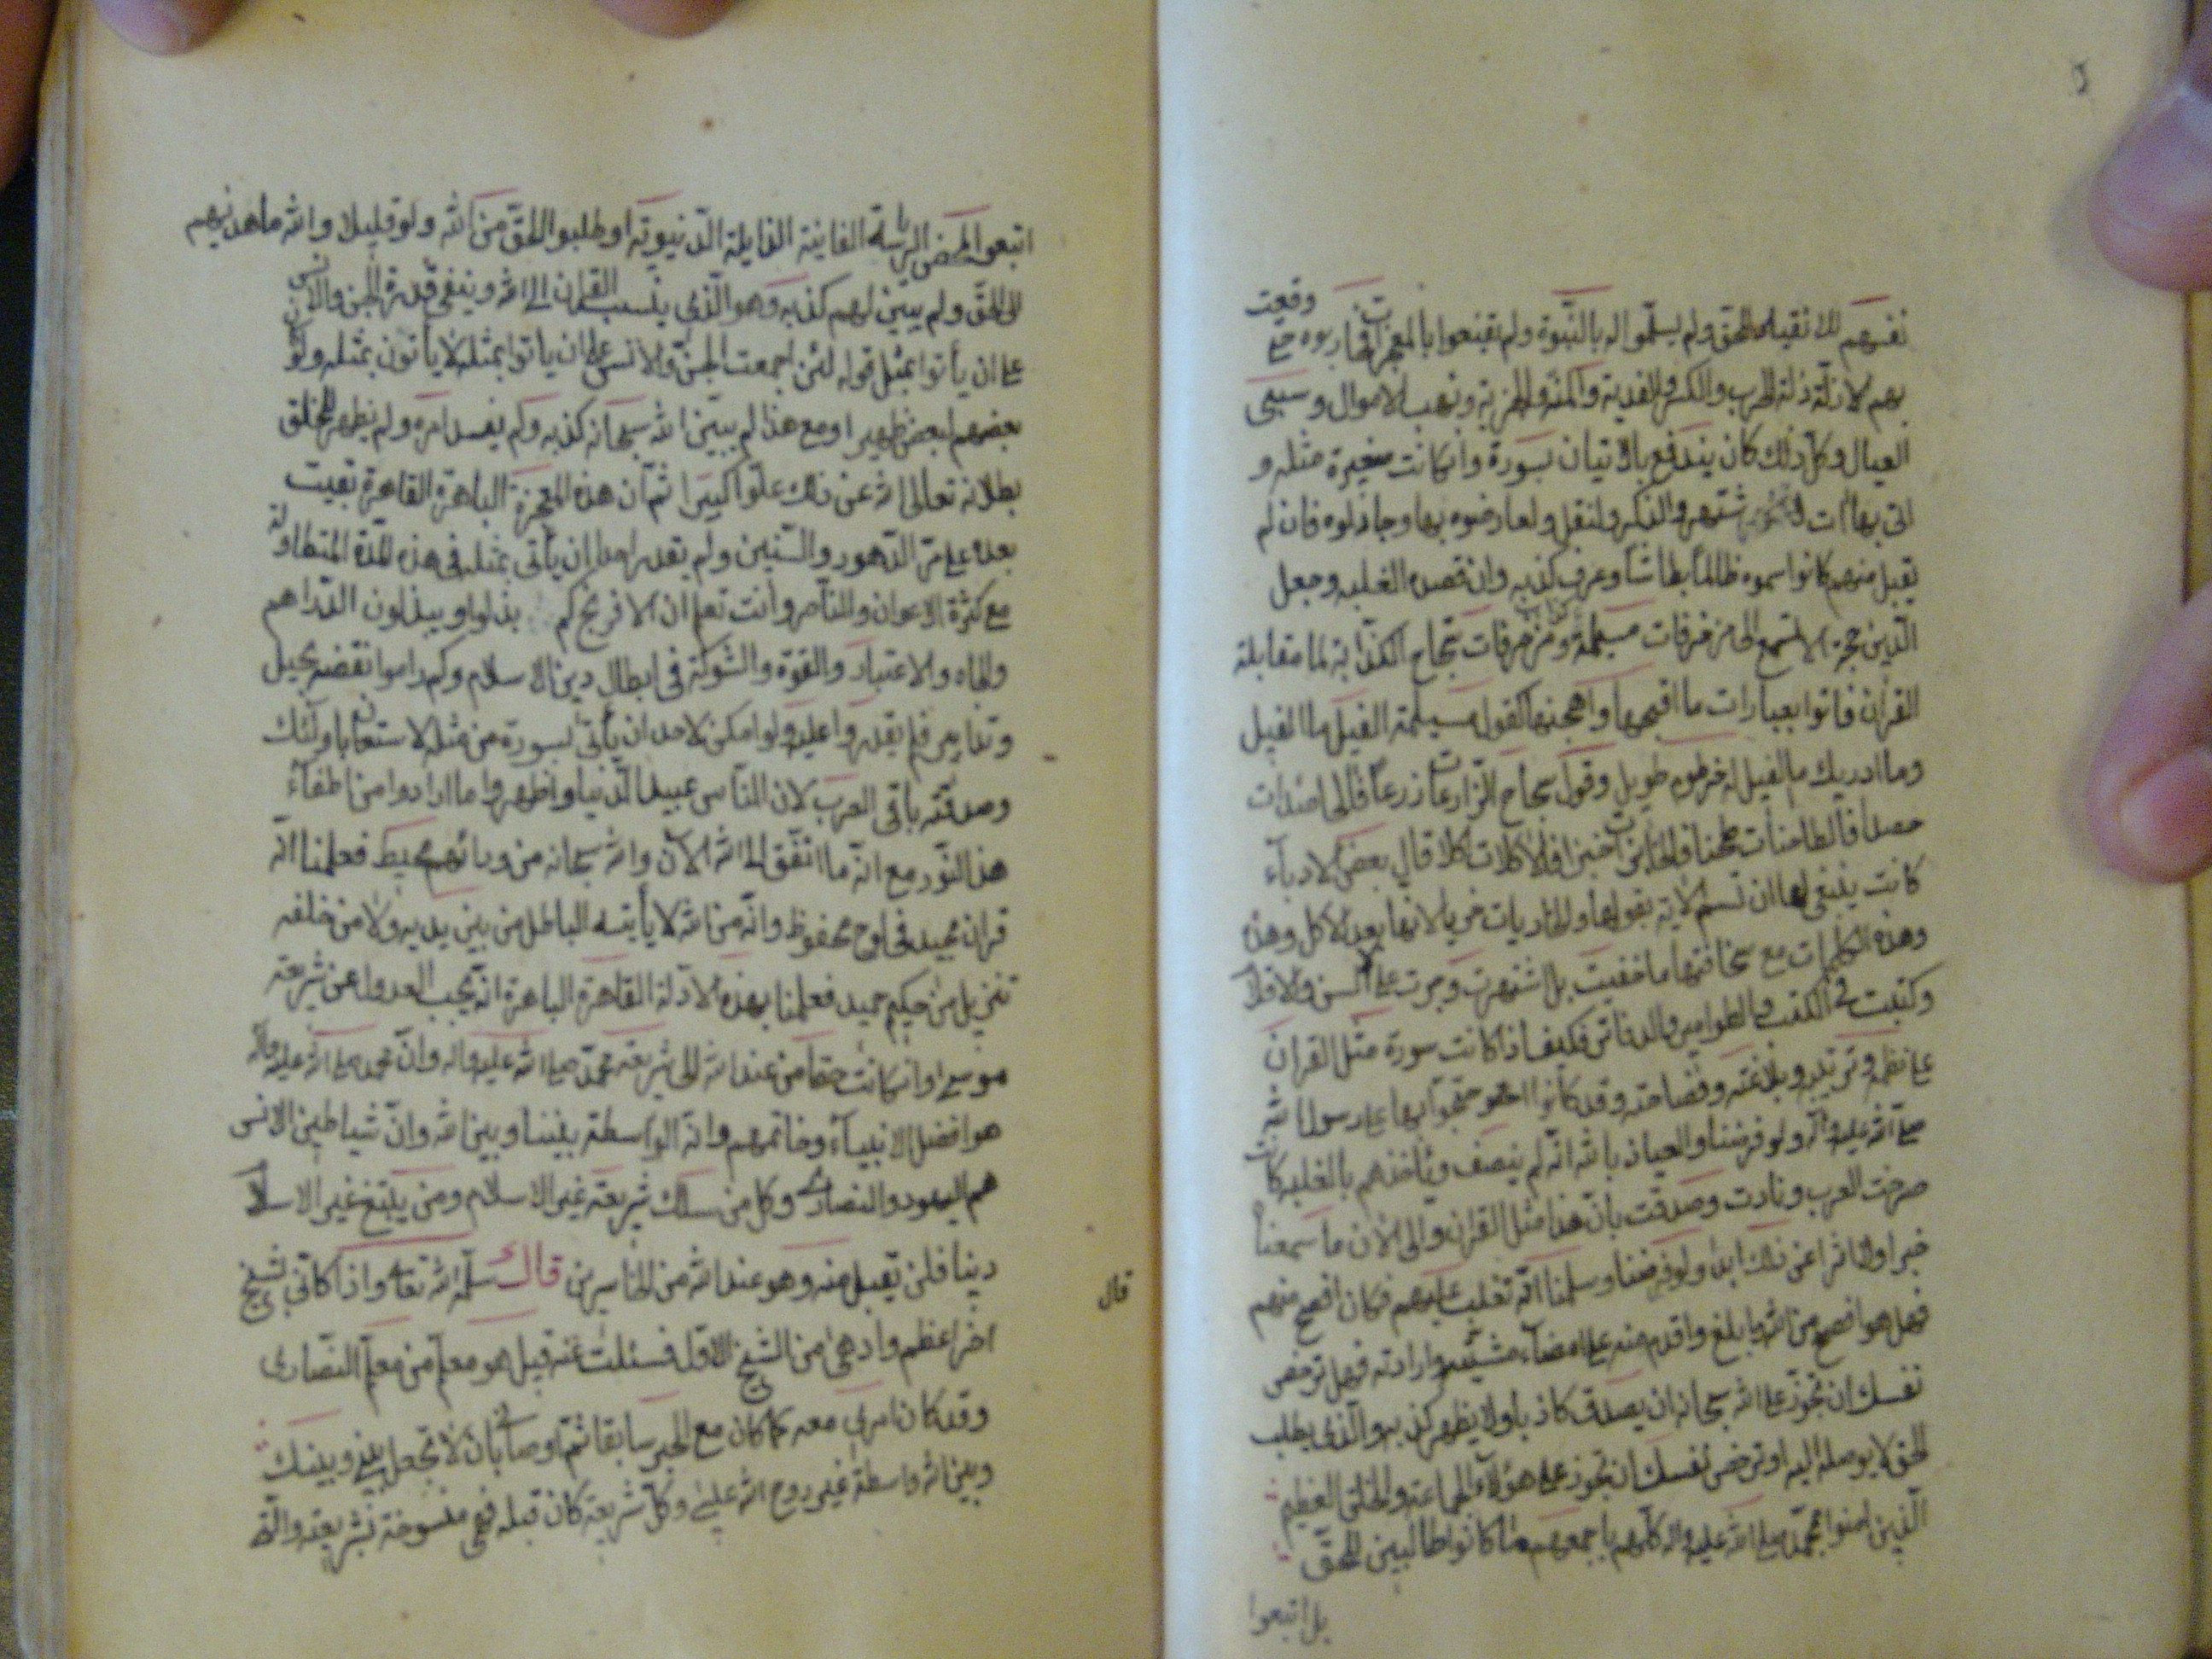 نفسهم لك نقيله الحق ولم يسلّموا له بالنّبوة ولم يقنعوا بالمعجزات فحاربوه حتى وقعت
بهم الاذلّة ذلة الحرب والكسر والفدية والمنّة والجزية ونهب الاموال وسبى
العيال وكل ذلك كان يندفع بالاتيان بسورة وان كانت صغيرة مثله و
اتى بها ات اشتهر والذكر ولنقل ولعارضوه بها وجادلوه فان لم
يقبل منهم كانوا سموه ظالماً بطاشاً وعرف كذبه وان قصده الغلبه وجعل
الدّين حجة الا تسمع الى مزخرفات مسيلمة كذاب ومزخرفات سجاح الكذّابة لما مقابلة
القرآن فاتوا بعبارات ما اقبحها واهجنها كقول مسيلمة الفيل ما الفيل
وما ادريك ما الفيل له خرطوم طويل وقول سجاح الزّارعات زرعاً فالحاصدات
حصداً فالطاحنات طحناً فالخابزات خبزا فالاكلات اكلا قال بعض الادبآء
كانت ينبغى لها ان تسم الاية بقولها والخاريات خريا لانها بعد الاكل وهذه
وهذه الكلمات مع سخافتها ما خفيت بل اشتهرت وجرت على الالسن والاقلام
وكتبت فى الكتب والطوامير والدفاتر فكيف اذا كانت سورة مثل القرآن
على نظمه وترتيبه وبلاغته وفصاحته وقد كانوا احتجوا بها على رسول الله
صلى الله عليه وآله ولو فرضنا والعياذ بالله انّه لم ينصف ويأخذهم بالغلبه كانت
صرخت العرب ونادت وصدقت بان هذا مثل القران والى الان ما سمعنا
خبرا ولا اثرا عن ذلك ابدا ولو فرضنا وسلمنا انّه تغلب عليهم فكان افصح منهم
فهل هو افصح من الله وابلغ واقدم منه على امضآء مشيّته وارادته فهل ترضى
نفسك ان تجوّز على الله سبحانه ان يصدق كاذبا ولا يظهر كذبه والّذى يطلب
الحق لا يوصله اليه او ترضى نفسك ان تجوز على هؤلآء الجماعة والخلق العظيم
الّذين امنوا بمحمّد صلى الله عليه واله كلّهم باجمعهم ما كانوا طالبين للحقّ
بل اتبعوا
اتبعوا لمحض الرياسة الفانية الزايلة الدّنيويّة او طلبوا الحقّ من الله ولو قليلا والله ما هديهم
الى الحقّ ولم يبيّن لهم كذبه وهو الّذى ينسب القران الى الله وينفى قدرة الجن والانس
على ان يأتوا بمثل قوله لئن اجمعت الجنّ والانس على ان يأتوا بمثله لا يأتون بمثله ولو كان
بعضهم لبعض ظهيرا ومع هذا لم يبيّن الله سبحانه كذبه ولم يفسد امره ولم يظهر للخلق
بطلانه تعالى الله عن ذلك علوّا كبيرا ثمّ ان هذه المعجزة الباهرة القاهرة بقيت
بعده على مرّ الدّهور والسّنين ولم يقدر احد ان يأتى بمثله فى هذه المدّة المتطاولة
مع كثرة الاعوان والنّاصر وانت تعلم ان الافرنج كم بذلوا ويبذلون الدّراهم
والجاه والاعتبار والقوّة والشوكة فى ابطال دين الاسلام وكم راموا نقضه بحيل
وتدابير فلم يقدروا عليه ولو امكن لاحد ان يأتى بسورة من مثله لاستعان باولئك
وصدقته باقى العرب لان النّاس عبيد الدّنيا واظهروا ما ارادوا من اطفآء
هذا النّور مع انّه ما اتفق الى الان والله سبحانه من ورائهم محيط فعلمنا انّه
قران مجيد فى لوح محفوظ وانّه من الله لا يأتيه الباطل من بين يديه ولا من خلفه
تنزيل من حكيم حميد فعلمنا بهذه الادلة القاهرة الباهرة انّه يجب العدول عن شريعة
موسى وان كانت حقا من عند الله الى شريعة محمّد صلى الله عليه واله وانّ محمد صلى الله عليه واله
هو افضل الانبيآء وخاتمهم وانّه الواسطة بيننا وبين الله وانّ شياطين الانس
هم اليهود والنصارى وكل من سلك شريعة غير الاسلام ومن يبتغ غير الاسلام
دينا فلن يقبل منه وهو عند الله من الخاسرين قال سلّمه الله تعالى واذا كانى بشيخ
اخر اعظم وادهى من الشيخ الاوّل فسئلت عنه قيل هو معلّم من معلّم النّصارى
وقد كان امرى معه كما كان مع الحبر سابقا ثمّ اوصانى بان لا تجعل بينى وبينك
وبين الله واسطة غير روح الله على وكل شريعة كان قبله فهى منسوخة بشريعته والّتى
قال